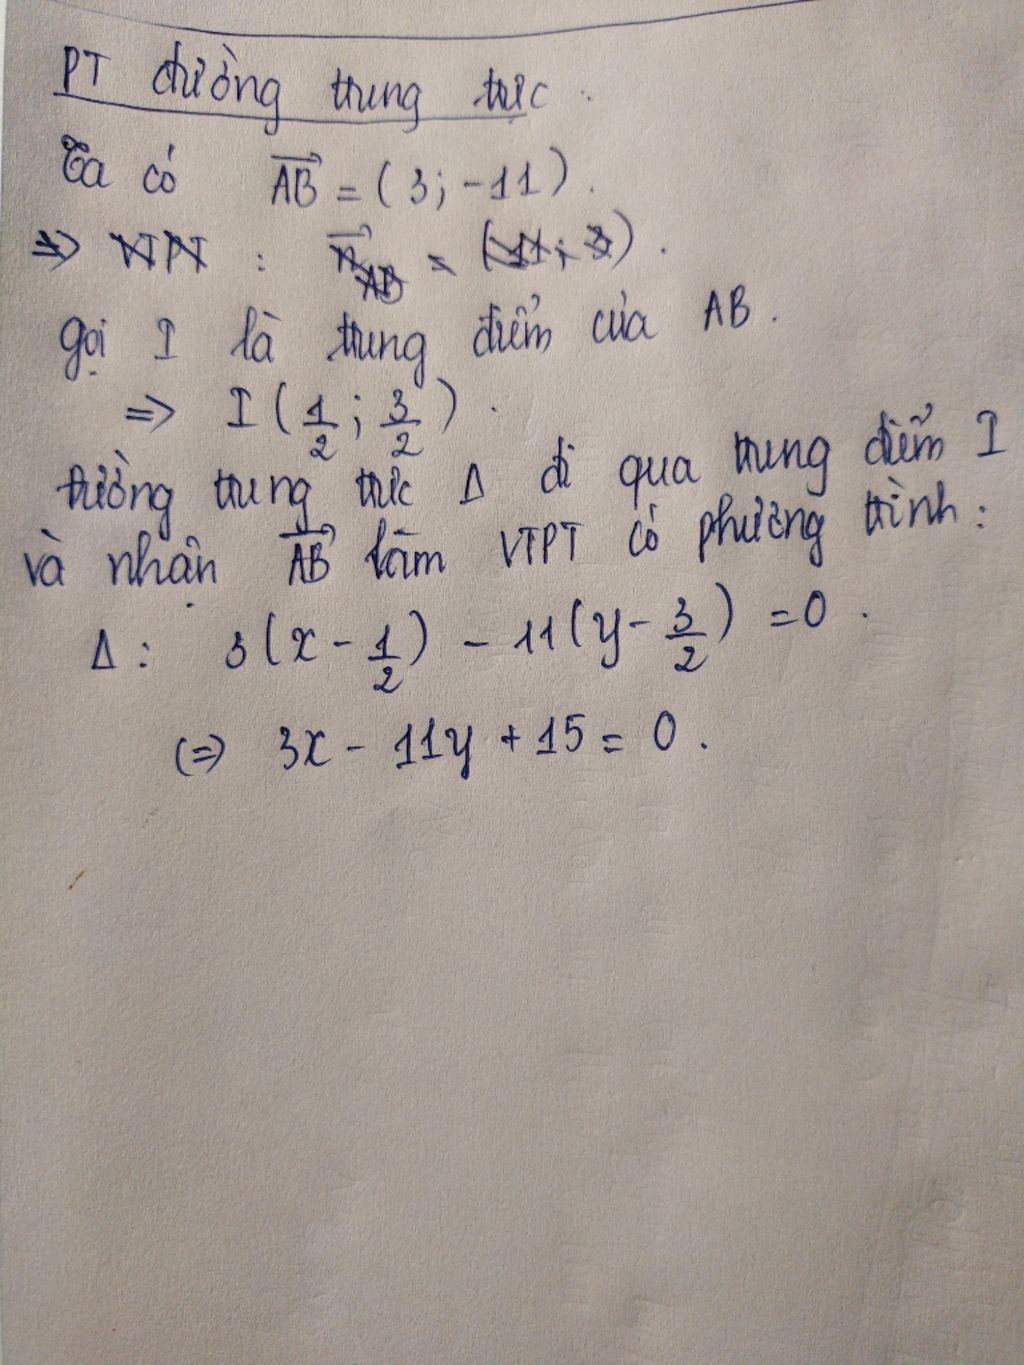 PT đường trung trực.
Ta có AB = (3; -11).
=> VTPT : n AB = (11; 3).
gọi I là trung điểm của AB.
=> I(1/2; 3/2).
đường trung trực Δ đi qua trung điểm I
và nhận AB làm VTPT có phương trình:
Δ: 3(x - 1/2) - 11(y - 3/2) = 0.
(=> 3x - 11y + 15 = 0.